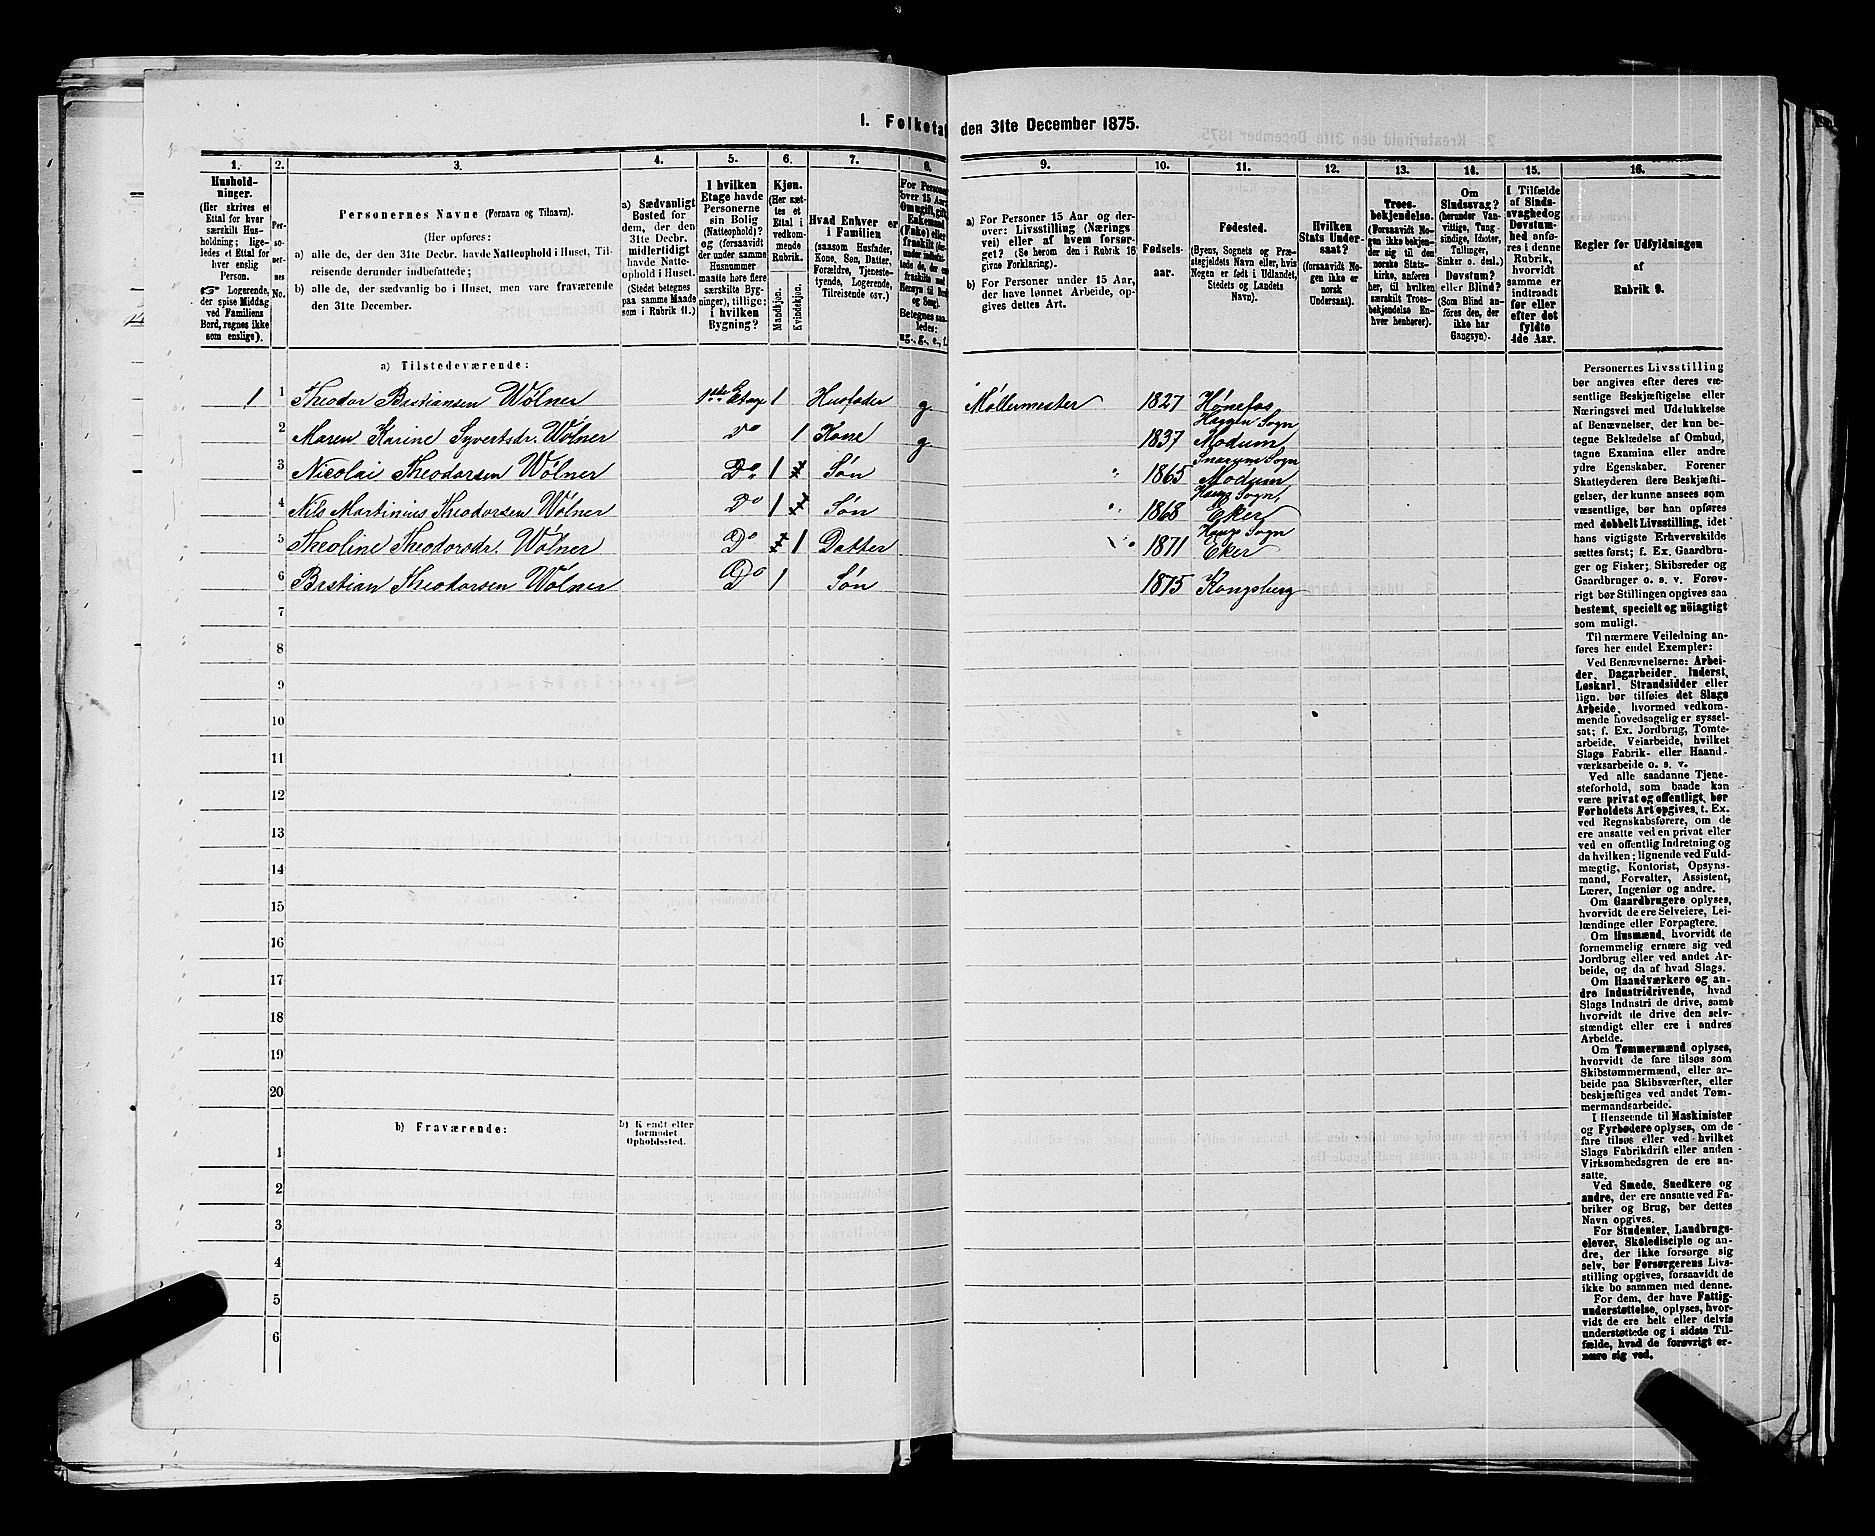 1. Folketæ den 31te December 1875.
1. 2. 3. 4. 5. 6. 7. 8. 9. 10. 11. 12. 13. 14. 15. 16.
Hushold-
ninger.
(Her skrives et
Ettal for hver
særskilt Hus-
holdning; lige-
ledes et Ettal for
hver enslig
Person.
☞ Logerende,
der spise Middag
ved Familiens
Bord, regnes ikke
som enslige).
Per-
so-
ner-
nes
No.
Personernes Navne (Fornavn og Tilnavn).
(Her opføres:
a) alle de, der den 31te Decbr. havde Natteophold i Huset, Til-
reisende derunder indbefattede;
b) alle de, der sædvanlig bo i Huset, men vare fraværende
den 31te December.
a) Sædvanligt
Bosted for
dem, der den
31te Decbr.
midlertidigt
havde Natte-
ophold i Huset.
(Stedet betegnes
paa samme Maade
som i Rubrik 11.)
I hvilken
Etage havde
Personerne
sin Bolig
(Natteophold)?
og (forsaavidt
der under samme
Husnummer
maatte høre flere
særskilte Byg-
ninger), tillige:
i hvilken
Bygning?
Kjøn.
(Her sæt-
tes et
Ettal i
vedkom-
mende
Rubrik.
Mandkjøn.
Kvindekjøn.
Hvad Enhver er
i Familien
(saasom Husfader,
Kone, Søn, Datter,
Forældre, Tjeneste-
tyende, Logerende,
Tilreisende osv.)
For Personer
over 15 Aar:
Om ugift, gift,
Enkemand
(Enke) eller
fraskilt
Betegnes saa-
ledes:
ug., g., e., f.
a) For Personer 15 Aar og der-
over: Livsstilling (Nærings
vei) eller af hvem forsør-
get? (Se herom den i Rubrik 16
givne Forklaring).
b) For Personer under 15 Aar,
der have lønnet Arbeide, op-
gives dettes Art.
Fødsels-
aar.
Fødested.
(Byens, Sognets og Præ-
stegjeldets Navn eller, hvis
Nogen er født i Udlandet,
Stedets og Landets
Navn).
Hvilken
Stats Under-
saat?
(forsaavidt No-
gen ikke er
norsk
Undersaat).
Troes-
bekjendelse.
(Forsaavidt No-
gen ikke bekjen-
der sig til den
norske Stats-
kirke, anføres
her, til hvilken
særskilt Troes-
bekjendelse En-
hver henhører).
Om
Sindssvag?
(herunder Van-
vittige, Tung-
sindige, Idioter,
Tullinger,
Sinker o. desl.)
Døvstum?
eller Blind?
(Som Blind an-
føres den, der
ikke har
Gangsyn).
I Tilfælde
af Sinds-
svaghed og
Døvstum-
hed anfø-
res i denne
Rubrik,
hvorvidt
samme er
indtraadt
før eller
efter det
fyldte
4de Aar.
Regler for Udfyldningen
af
Rubrik 9.
a) Tilstedeværende:
1 1 Theodor Bastiansen Wölner 1ste Etage 1 Husfader g. Møllermester 1827 Hønefos
2 Maren Karine Syvertsdr. Wölner Do 1 Kone g. 1837 Heggen Sogn Modum
3 Nicolai Theodorsen Wölner Do 1 Søn " 1865 Snarum Sogn Modum
4 Nils Martinius Theodorsen Wölner Do 1 Søn " 1868 Haugs Sogn, Eker
5 Theoline Theodorsdr. Wölner Do 1 Datter 1871 Haugs Sogn Eker
6 Bastian Theodorsen Wölner Do 1 Søn 1875 Kongsberg
7
8
9
10
11
12
13
14
15
16
17
18
19
20
b) Fraværende:
b) Kjendt eller
formodet
Opholdssted.
1
2
3
4
5
6
Personernes Livsstilling
bør angives efter deres væ-
sentlige Beskjæftigelse eller
Næringsvei med Udelukkelse
af Benævnelser, der kun be-
tegne Beklædelse af Ombud,
tagne Examina eller andre
ydre Egenskaber. Forener
Skatteyderen flere Beskjæfti-
gelser, der kunne ansees som
væsentlige, bør han opføres
med dobbelt Livsstilling, idet
hans vigtigste Erhvervskilde
sættes først; f. Ex. Gaardbru-
ger og Fisker; Skibsreder og
Gaardbruger o. s. v. Forøv-
rigt bør Stillingen opgives saa
bestemt, specielt og nöiagtigt
som muligt.
Til nærmere Veiledning an-
føres her endel Exempler:
Ved Benævnelserne: Arbei-
der, Dagarbeider, Inderst,
Løskarl, Strandsidder eller
lign. bør tilføies det Slags
Arbeide, hvormed vedkom-
mende hovedsagelig er syssel-
sat; f. Ex. Jordbrug, Tomte-
arbeide, Veiarbeide, hvilket
Slags Fabrik- eller Haand-
værksarbeide o. s. v.
Ved alle saadanne Tjene-
steforhold, som baade kan
være privat og offentligt, bør
Forholdets Art opgives, t. Ex.
ved Regnskabsførere, om de
ere ansatte ved en privat eller
ved en offentlig Indretning og
da hvilken; lignende ved Fuld-
mægtig, Kontorist, Opsyns-
mand, Forvalter, Assistent,
Lærer, Ingeniør og andre.
Om Gaardbrugere oplyses,
hvorvidt de ere Selveiere, Lei-
lændinge eller Forpagtere.
Om Husmænd, hvorvidt de
fornemmelig ernære sig ved
Jordbrug eller ved andet Ar-
beide, og da af hvad Slags.
Om Haandværkere og an-
dre Industridrivende, hvad
Slags Industri de drive, samt
hvorvidt de drive den selv-
stændigt eller ere i andres
Arbeide.
Om Tømmermænd oplyses,
hvorvidt de fare tilsøs som
Skibstømmermænd, eller ar-
beide paa Skibsværfter, eller
beskjæftiges ved andet Tøm-
mermandsarbeide.
I Henseende til Maskinister
og Fyrbødere oplyses, om de
fare tilsøs eller ved hvilket
Slags Fabrikdrift eller anden
Virksomhedsgren de ere an-
satte.
Ved Smede, Snedkere og
andre, der ere ansatte ved Fa-
briker og Brug, bør dettes
Navn opgives.
For Studenter, Landbrugs-
elever, Skoledisciple og an-
dre, der ikke forsørge sig
selv, bør Forsørgerens Livs-
stilling opgives, forsaavidt de
ikke bo sammen med denne.
For dem, der have Fattig-
understøttelse, oplyses, hvor-
vidt de ere helt eller delvis
understøttede og i sidste Til-
fælde, hvad de forøvrigt er-
nære sig ved.